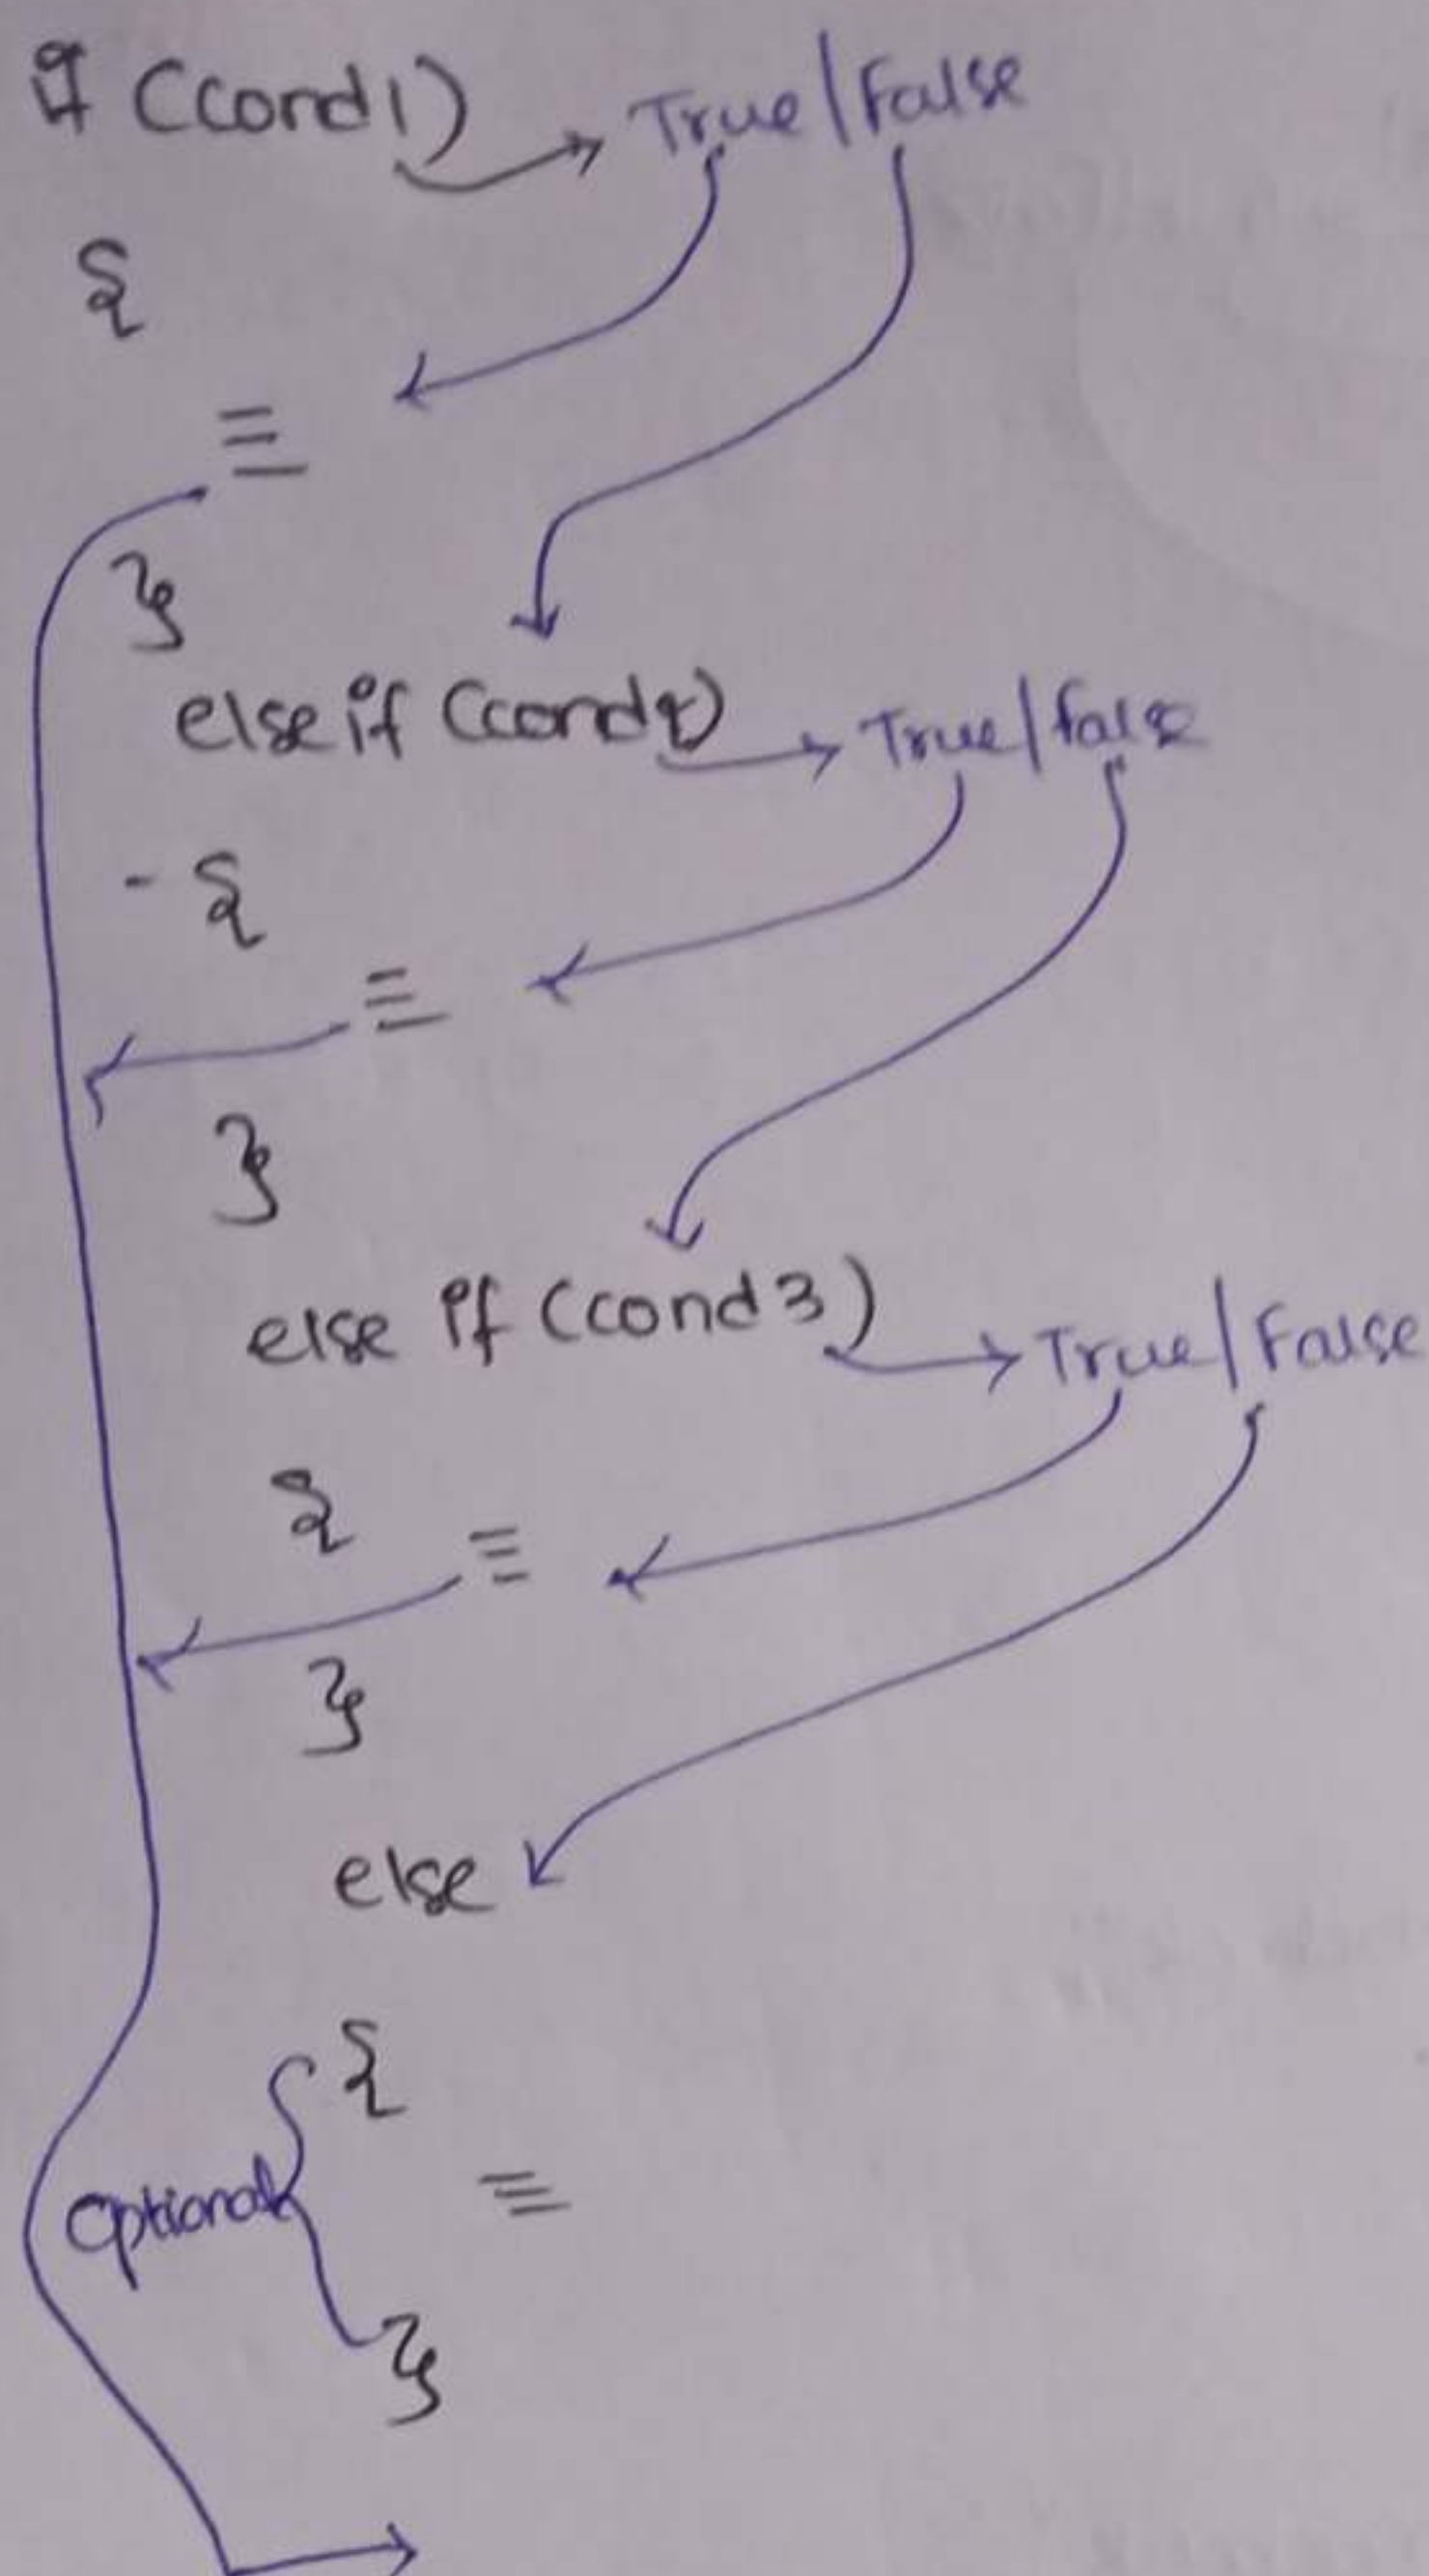 if (cond1) → True/False
{
}
else if (cond2) → True/false
- {
}
else if (cond3) → True/False
{
}
else
{
optional
}